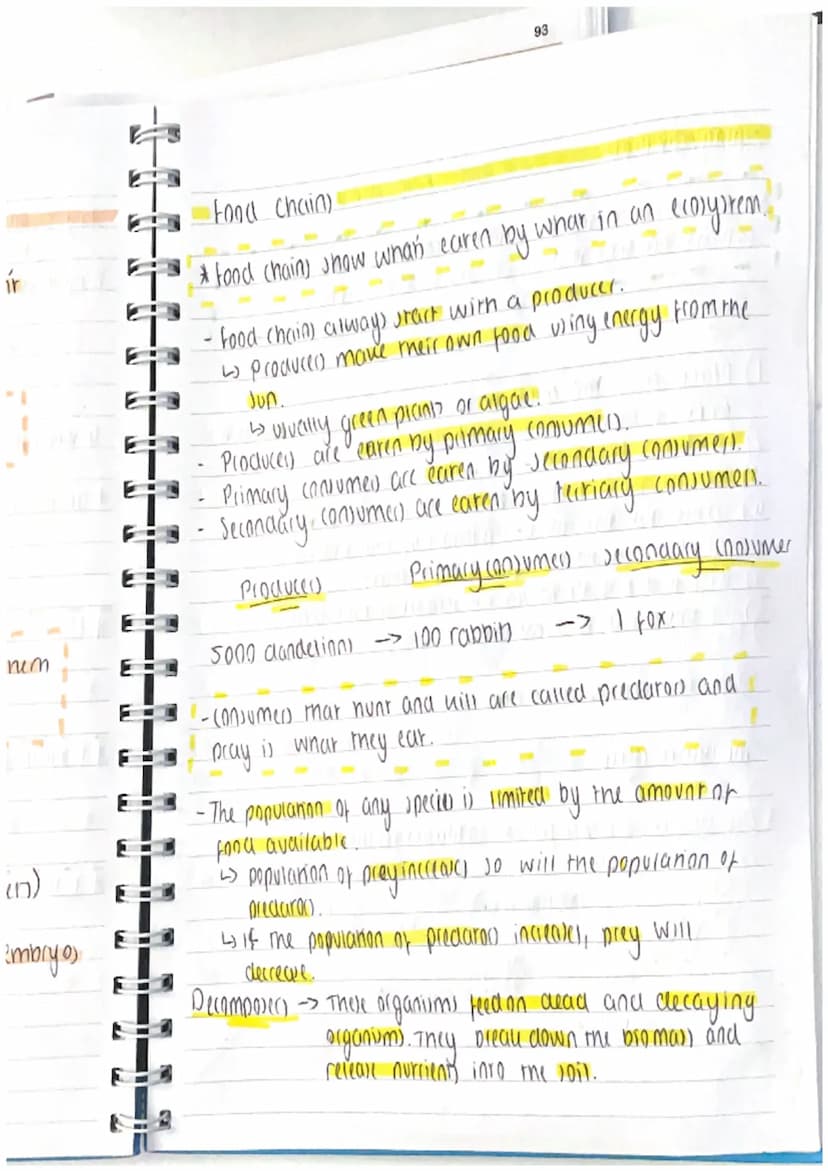 93
Food Chains
* Food chains show what's eaten by what in an ecosystem.
- Food chains always start with a producer.
↳ Producers make their own food using energy from the
sun.
↳ usually green plants or algae.
- Producers are eaten by primary consumers.
- Primary consumers are eaten by secondary consumers.
- Secondary consumers are eaten by tertiary consumers.
Producers Primary consumers secondary consumer
5000 dandelions -> 100 rabbits -> 1 fox.
- Consumers that hunt and kill are called predators and
pray is what they eat.
- The population of any species is limited by the amount of
food available.
↳ population of prey increases so will the population of
predators.
↳ if the population of predators increases, prey will
decrease.
Decomposers -> These organisms feed on dead and decaying
organisms. They break down the biomass and
release nutrients into the soil.
ir
nem
en)
embryos